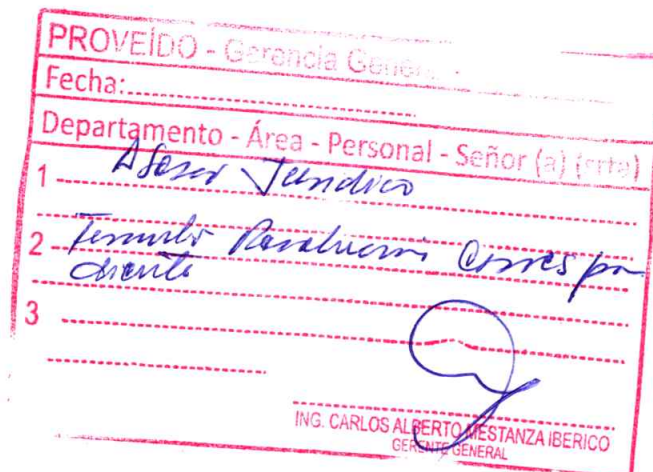 PROVEÍDO - Gerencia General
Fecha:
Departamento - Área - Personal - Señor (a) (srta)
1 Asesor Juridico
2 Resolucion Correspon
diente
3
ING. CARLOS ALBERTO MESTANZA IBERICO
GERENTE GENERAL